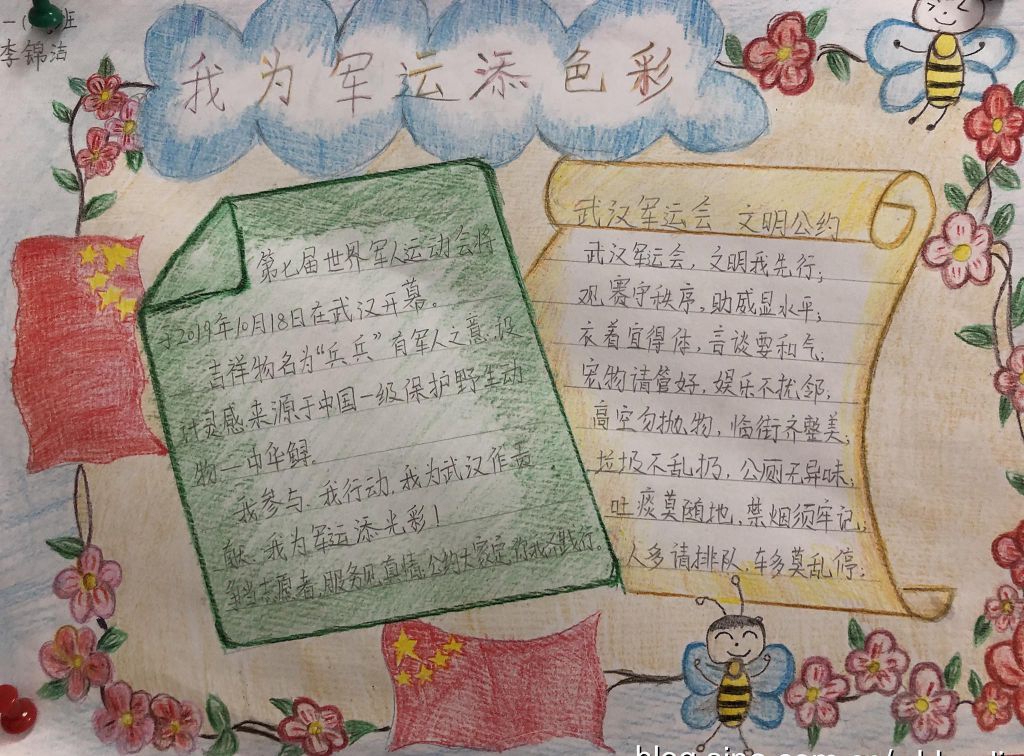 班
李锦洁
我为军运添色彩
第七届世界军人运动会将
于2019年10月18日在武汉开幕。
吉祥物名为“兵兵”有军人之意,设
计灵感来源于中国一级保护野生动
物一中华鲟。
我参与,我行动,我为武汉作贡
献,我为军运添光彩!
争当志愿者,服务见真情,公约大家定,你我齐践行。
武汉军运会 文明公约
武汉军运会,文明我先行;
观赛守秩序,助威显水平;
衣着宜得体,言谈要和气;
宠物请管好,娱乐不扰邻;
高空勿抛物,临街齐整美;
垃圾不乱扔,公厕无异味;
吐痰莫随地,禁烟须牢记;
人多请排队,车多莫乱停;